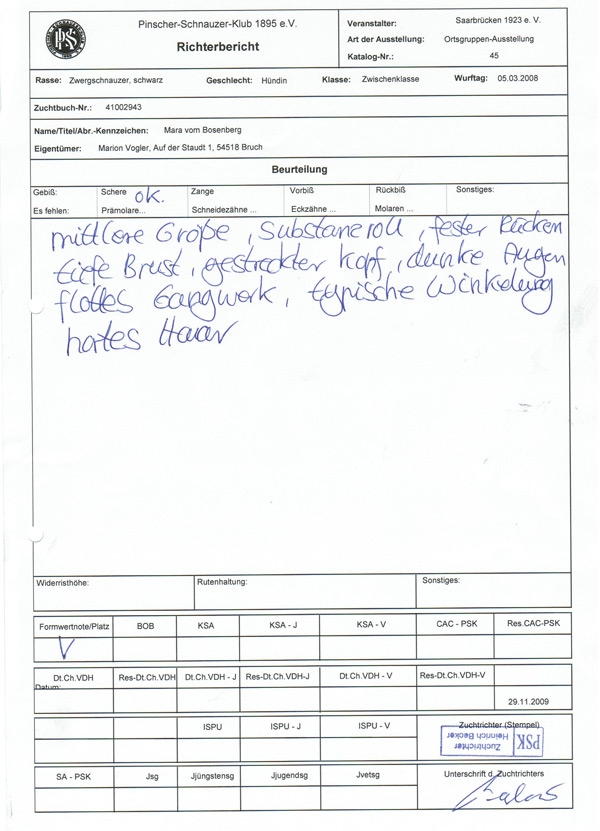 Pinscher-Schnauzer-Klub 1895 e.V.
Richterbericht
Veranstalter: Saarbrücken 1923 e.V.
Art der Ausstellung: Ortsgruppen-Ausstellung
Katalog-Nr.: 45
Rasse: Zwergschnauzer, schwarz Geschlecht: Hündin Klasse: Zwischenklasse Wurftag: 05.03.2008
Zuchtbuch-Nr.: 41002943
Name/Titel/Abr.-Kennzeichen: Mara vom Bosenberg
Eigentümer: Marion Vogler, Auf der Staudt 1, 54518 Bruch
Beurteilung
Gebiß: Schere ok. Zange Vorbiß Rückbiß Sonstiges:
Es fehlen: Prämolare... Schneidezähne ... Eckzähne ... Molaren ...
mittlere Größe, Substanzvoll, fester Rücken
tiefe Brust, gestreckter Kopf, dunkle Augen
flottes Gangwerk, typische Winkelung
hartes Haar
Widerristhöhe: Rutenhaltung: Sonstiges:
Formwertnote/Platz BOB KSA KSA - J KSA - V CAC - PSK Res.CAC-PSK
V
Dt.Ch.VDH Res-Dt.Ch.VDH Dt.Ch.VDH - J Res-Dt.Ch.VDH-J Dt.Ch.VDH - V Res-Dt.Ch.VDH-V
Datum:
29.11.2009
ISPU ISPU - J ISPU - V Zuchtrichter (Stempel)
PSK Zuchtrichter
Heinrich Becker
SA - PSK Jsg Jjüngstensg Jjugendsg Jvetsg Unterschrift d. Zuchtrichters